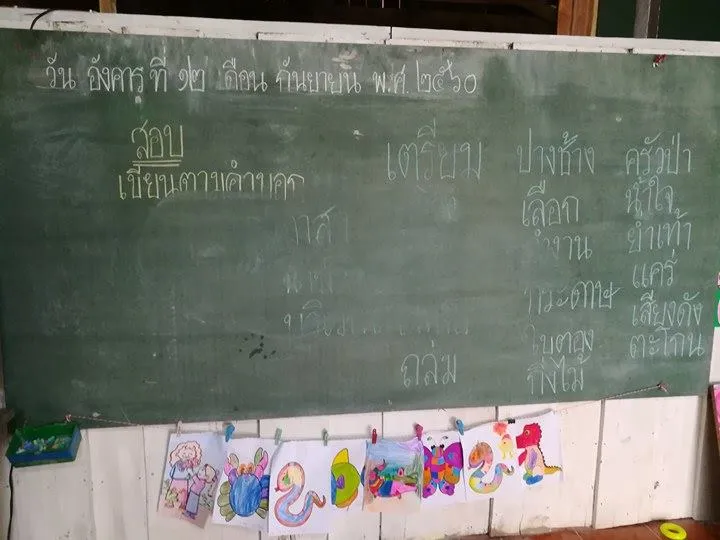 วัน อังคาร ที่ ๑๒ เดือน กันยายน พ.ศ. ๒๕๖๐
สอบ
เขียนตามคำบอก
เตรียม
ถล่ม
ปางช้าง
เลือก
กระดาษ
ใบตอง
กิ่งไม้
ครัวป่า
น้ำใจ
ย่ำเท้า
แคร่
เสียงดัง
ตะโกน